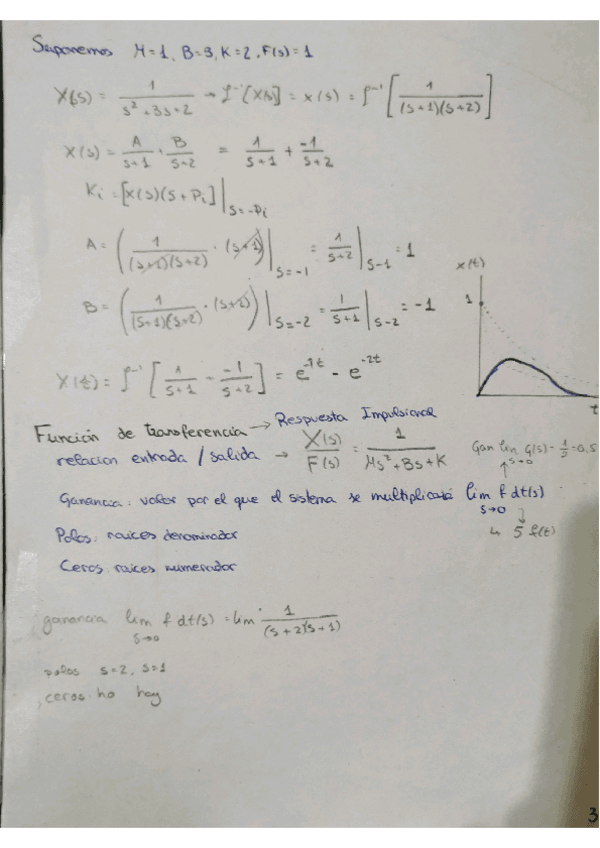 Suponemos M=1, B=3, K=2, F(s)=1
X(s) = 1/(s²+3s+2) → ℒ⁻¹[X(s)] = x(s) = ℒ⁻¹[1/((s+1)(s+2))]
X(s) = A/(s+1) · B/(s+2) = 1/(s+1) + -1/(s+2)
Ki = [X(s)(s+Pi]|s=-Pi
A = (1/((s+1)(s+2)) · (s+1))|s=-1 = 1/(s+2)|s-1 = 1
x(t)
1
t
B = (1/((s+1)(s+2)) · (s+2))|s=-2 = 1/(s+1)|s-2 = -1
X(t) = ℒ⁻¹[1/(s+1) - -1/(s+2)] = e^-1t - e^-2t
Función de transferencia → Respuesta Impulsional
relacion entrada / salida → X(s)/F(s) = 1/(Ms²+Bs+K)
G(s) = =0,5
s→0
Ganancia: valor por el que el sistema se multiplicará lim f dt(s)
s→0
5 f(t)
Polos: raices denominador
Ceros: raices numerador
ganancia lim f dt(s) = lim 1/((s+2)(s+1))
s→0
polos s=2, s=1
ceros no hay
3